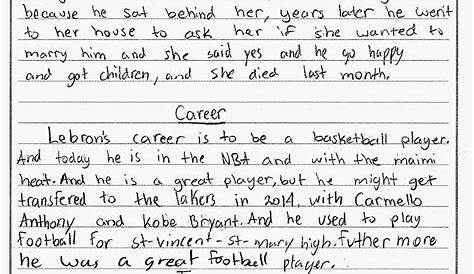 because he sat behind her, years later he went
to her house to ask her if she wanted to
marry him and she said yes and he go happy
and got children, and she died last month.
Career
Lebron's career is to be a basketball player.
And today he is in the NBA and with the maimi
heat. And he is a great player, but he might get
transfered to the lakers in 2014, with Carmello
Anthony and Kobe Bryant. And he used to play
football for st-vincent-st-mary high. futher more
he was a great football player.